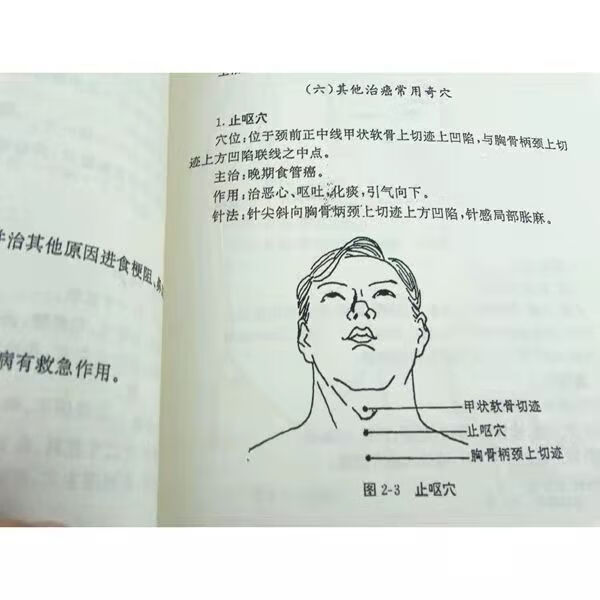 (六)其他治癌常用奇穴
1.止呕穴
穴位:位于颈前正中线甲状软骨上切迹上凹陷,与胸骨柄颈上切
迹上方凹陷联线之中点。
主治:晚期食管癌。
作用:治恶心、呕吐,化痰,引气向下。
针法:针尖斜向胸骨柄颈上切迹上方凹陷,针感局部胀麻。
治其他原因进食梗阻、
病有救急作用。
甲状软骨切迹
止呕穴
胸骨柄颈上切迹
图 2-3 止呕穴